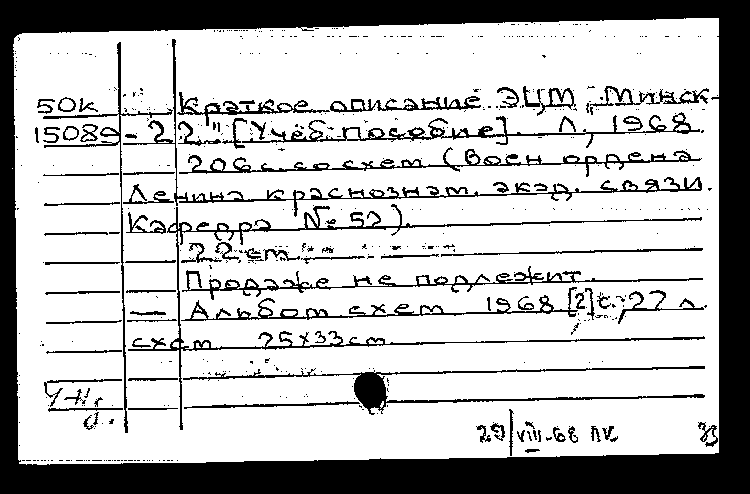 50к Краткое описание ЭЦМ „Минск-
15089-2 2" [Учеб. пособие]. Л., 1968.
206 с. со схем (Воен ордена
Ленина краснознам. акад. связи.
Кафедра № 52).
22 см
Продаже не подлежит.
— Альбом схем 1968 [2] с., 27 л.
схем 25x33 см.
29/VIII-68 ЛК